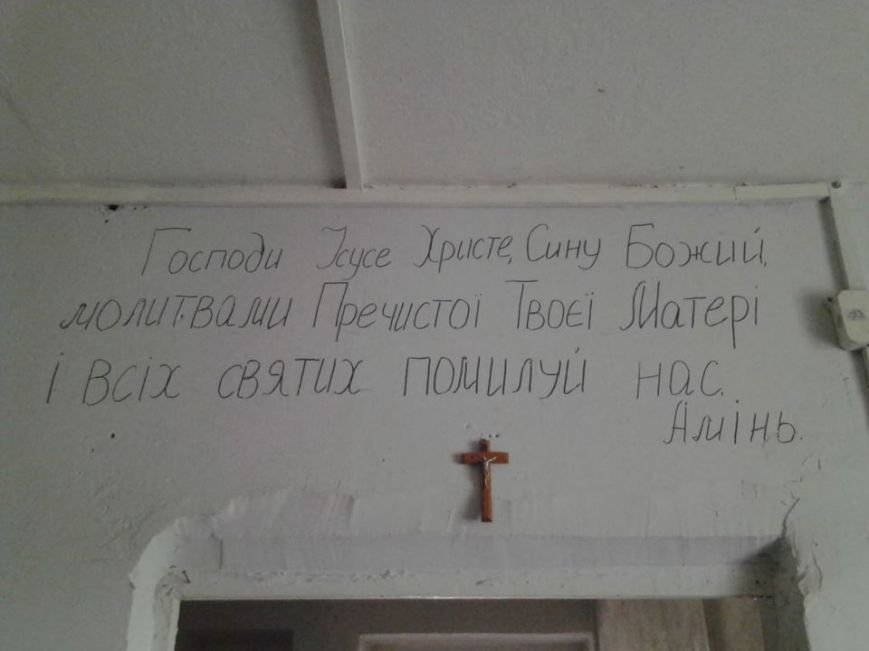 Господи Ісусе Христе, Сину Божий,
молитвами Пречистої Твоєї Матері
і всіх святих помилуй нас.
Амінь.